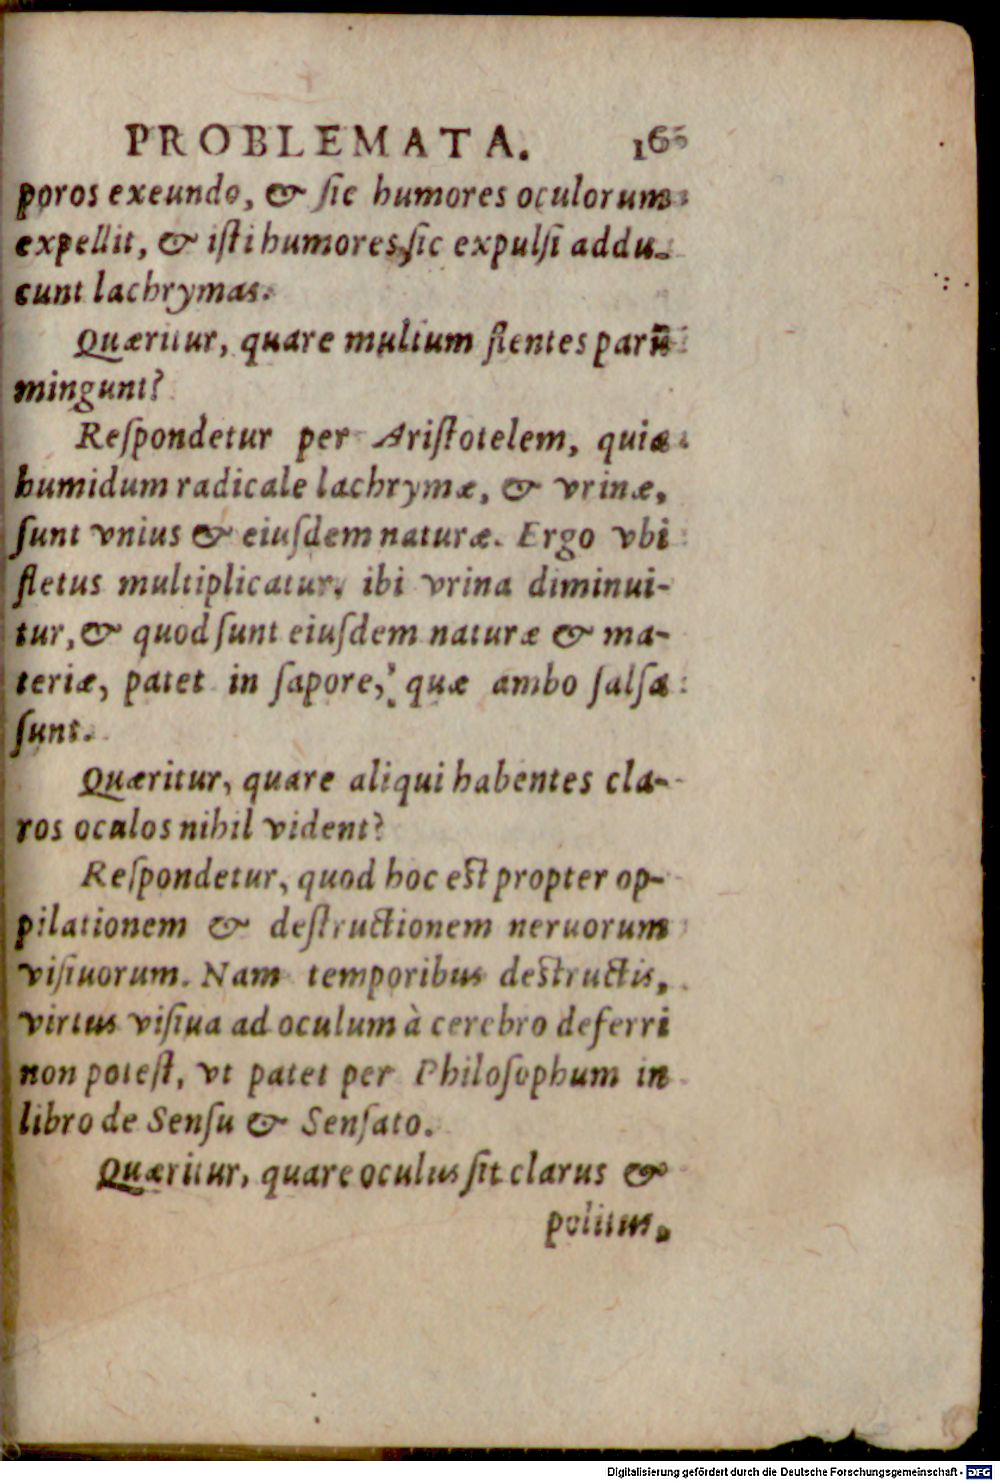 PROBLEMATA. 166
poros exeundo, & ſic humores oculorum
expellit, & iſti humores, ſic expulſi addu-
cunt lachrymas.
Quæritur, quare multum flentes parū
mingunt?
Reſpondetur per Ariſtotelem, quia
humidum radicale lachrymæ, & vrinæ,
ſunt vnius & eiuſdem naturæ. Ergo vbi
fletus multiplicatur, ibi vrina diminui-
tur, & quod ſunt eiuſdem naturæ & ma-
teriæ, patet in ſapore, quæ ambo ſalſa
ſunt.
Quæritur, quare aliqui habentes cla-
ros oculos nihil vident?
Reſpondetur, quod hoc eſt propter op-
pilationem & deſtructionem neruorum
viſiuorum. Nam temporibus deſtructis,
virtus viſiua ad oculum à cerebro deferri
non poteſt, vt patet per Philoſophum in
libro de Senſu & Senſato.
Quæritur, quare oculus ſit clarus &
politus,
Digitalisierung gefördert durch die Deutsche Forschungsgemeinschaft - DFG